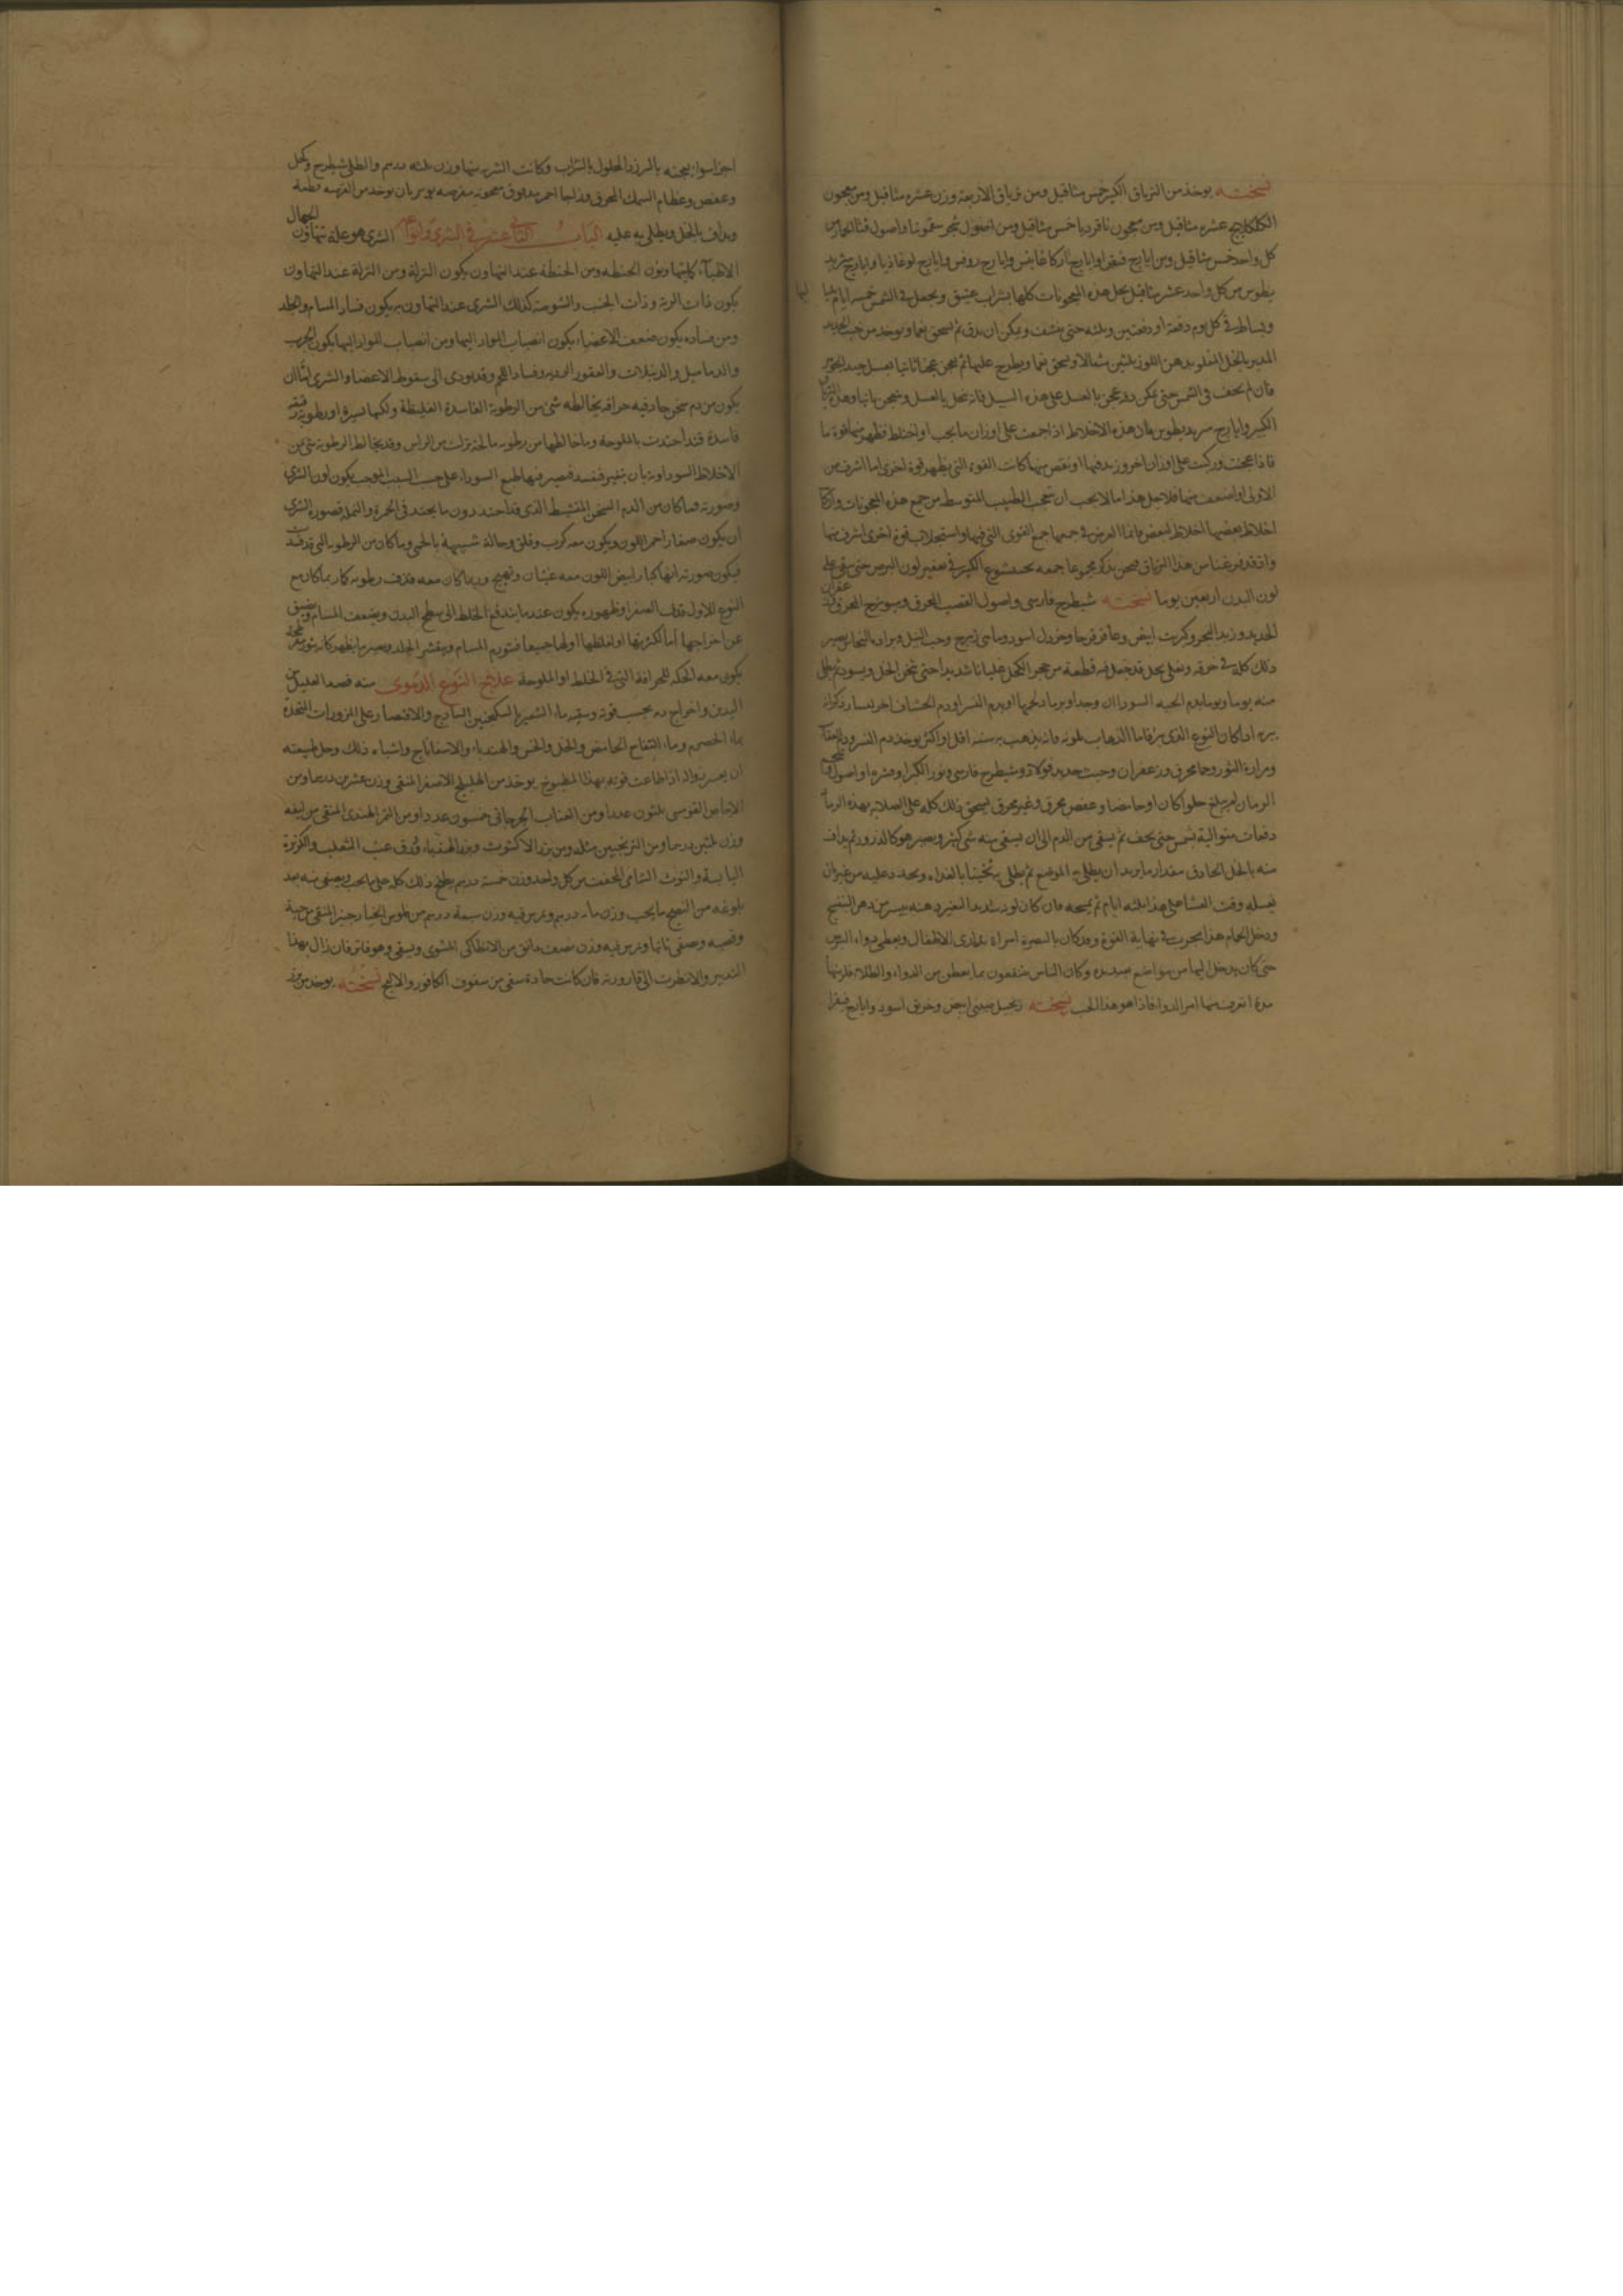 نسخته يوخذ من الترياق الكبير خمس مثاقيل ومن ترياق الاربعة وزن عشره مثاقيل ومن معجون
الكلكلانج عشره مثاقيل ومن معجون ناقرديا خمس مثاقيل ومن اصول شجر سقمونيا واصول قثا الحمار من
كل واحد خمس مثاقيل ومن ايارج فيقرا وايارج اركاغانيس وايارج روفس وايارج لوغاذيا وايارج
بطوس من كل واحد عشر مثاقيل يحل هذه المعجونات كلها بشراب عتيق ويجعل في الشمس خمسه ايام
ويساط في كل يوم دفعة او دفعتين وثلثه حتى ينشف ويمكن ان يدق ثم يسحق نعما ويوخذ من خبث الحديد
المدبر بالخل المقلو بدهن اللوز ثلثين مثقالا ويسحق نعما ويطرح عليها ثم يعجن عجنا ثانيا بعسل جيد
فان لم يجف في الشمس حتى يمكن دقه عجن بالعسل على هذه السبيل فانه ينحل بالعسل وينعجن ثانيا وهذا
الكبير وايارج بطوس فان هذه الاخلاط اذا جمعت على اوزان ما يجب او اختلط فظهر منها قوة ما
فاذا عجنت وركبت على اوزان اخر وزيد فيها او نقص منها كانت القوة التي يظهر قوة اخرى اما اشرف من
الاولى او اضعف منها فلاجل هذا ما لا يجب ان يتعجب الطبيب المتوسط من جمع هذه المعجونات
اخلاط بعضها اخلاط لبعض فانما الغرض في جمعها جمع القوى التي فيها واستجلاب قوة اخرى اشرف منها
واذ قد فرغنا من هذا الترياق فنحن نذكر مجموعا جمعه بختيشوع الكبير في تغيير لون البرص حتى يبقى على
لون البدن اربعين يوما نسخته شيطرج فارسي واصول القصب المحرق ومويزج المحرق
الحديد وزبد البحر وكبريت ابيض وعاقرقرحا وخردل اسود وماميران وحب النيل وبرادة النحاس يصير
ذلك كله في خرقه ويغلى بخل قد جعل فيه قطعة من حجر الكحل غليانا شديدا حتى يثخن الخل ويسود ثم يطلى
منه يوما ويوما بدم الحيه السودا ان وجد او برماد لحمها او بدم النسر او دم الخشاف
اذا كان النوع الذي ذكرناه الذهاب بلونه فانه يذهب به سنه اقل او اكثر يوخذ دم النسر
ومرارة الثور وحنا محرق وزعفران وخبث حديد فولاذ وشيطرج فارسي وبزر الكبر او قشره او اصول
الرمان لم يبلغ حلوا كان او حامضا وعفص محرق وغير محرق يسحق ذلك كله على الصلايه بهذه
دفعات متوالية بشمس حتى يجف ثم يسقى من الدم الى ان يسقى منه شي كثير ويصير هو كالذرور ثم يداف
منه بالخل الحاذق مقدار ما يريد ان يطلى به الموضع ثم يطلى به ثخينا بالغداه ويجدد عليه من غير ان
يغسله وقت العشا على هذا ثلثه ايام ثم يمسحه فان كان لونه شديد التغير دهنه بيسير من دهن البنفسج
ودخل الحمام هذا مجرب في نهاية القوة وقد كان بالبصرة امراة تداوى الاطفال ويعطى دواء البرص
حتى كان يدخل اليها من مواضع بعيده وكان الناس ينتفعون بما يعطى من الدواء والطلاء
مدة اتعرف منها امر الدوا فاذا هو هذا الحب نسخته زنجبيل صيني ابيض وخربق اسود وايارج فيقرا
اجزا سوا يعجنه المحلول بالشراب وكانت الشربه منها وزن ثلثه درهم والطلى شيطرج وكحل
وعفص وعظام السمك المحرق وزاجا احمر مدقوق معجونه مقرصه يومر بان يوخذ من القرصه قطعة
ويداف بالخل ويطلى به عليه الباب التاسع عشر في الشرى وانواعه الشرى هو علة يتهاون الجهال
الاطباء كما يتهاونون الحنطه ومن الحنطة عند التهاون يكون النزلة ومن النزلة عند التهاون
يكون ذات الريه وذات الجنب والشوصة كذلك الشرى عند التهاون به يكون فساد المسام والجلد
ومن فساده يكون ضعف الاعضاء يكون انصباب المواد اليها ومن انصباب المواد اليها يكون الجرب
والدماميل والدبيلات والعقور الرديه وفساد اللحم وقد يودى الى سقوط الاعضا والشرى اما ان
يكون من دم سخن حار فيه حرافه يخالطه شي من الرطوبة الفاسدة الغليظة ولكنها يسيرة او رطوبة
فاسدة قد اخذت بالملوحة وما خالطها من رطوبه مالحة نزلت من الراس وقد يخالط الرطوبة شي من
الاخلاط السوداويه بان يتغير فتفسد فيصير فيها طبع السوداء على حسب السبب الموجب يكون لون الشرى
وصورته فما كان من الدم السخن المتشيط الذي قد احتد دون ما يحتد في الحمرة والنملة فصورة الشرى
ان يكون صغارا احمر اللون ويكون معه كرب وقلق وحالة شبيهة بالحمى وما كان من الرطوبه التي قد
فيكون صورته انها كبارا بيض اللون معه غثيان وتهيج وربما كان معه قذف رطوبه كما ربما كان مع
النوع الاول قذف الصفرا وظهوره يكون عند ما يندفع الخلط الى سطح البدن ويضعف المسام ويضيق
عن اخراجها اما لكثرتها او لغلظها او لهما جميعا فتتورم المسام ويقشر الجلد ويصير ما يظهر كانه بثور
يكون معه الحكة للحرافة التي في الخلط او الملوحة علاج النوع الدموى منه فصد القيفال من
اليدين واخراج دم بحسب قوته وسقيه ماء الشعير بالسكنجبين الساذج والاقتصار على المزورات المتخذة
بماء الحصرم وماء التفاح الحامض والخل والخس والهندباء والاسفاناج واشباه ذلك وحل طبيعته
ان اطاعت قوته بهذا المطبوخ يوخذ من الهليلج الاصفر المنقى وزن عشرين درهما ومن
الاجاص القومسي ثلثون عددا ومن العناب الجرجاني خمسون عددا ومن التمر الهندي المنقى من ليفه
وزن ثلثين درهما ومن الترنجبين مثله ومن بزر الاكشوث وبزر الهندباء وورق عنب الثعلب والكزبرة
اليابسة والتوث الشامي المجفف من كل واحد وزن خمسة درهم يطبخ ذلك كله على ما يجب ويصفى منه بعد
بلوغه من النضج ما يجب وزن مايه درهم ويمرس فيه وزن سبعة درهم من فلوس الخيار جنبر المنقى من حبه
وقصبه وصفى ثانيا ويمرس فيه وزن نصف دانق من الانطاكي المشوى ويسقى وهو فاتر فان زال بهذا
التدبير والا نظرت الى قارورته فان كانت حادة سقى من سفوف الكافور والا نسخته يوخذ من